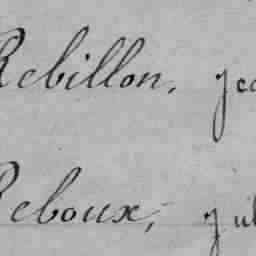 Rebillon, Jea
Reboux, Jul